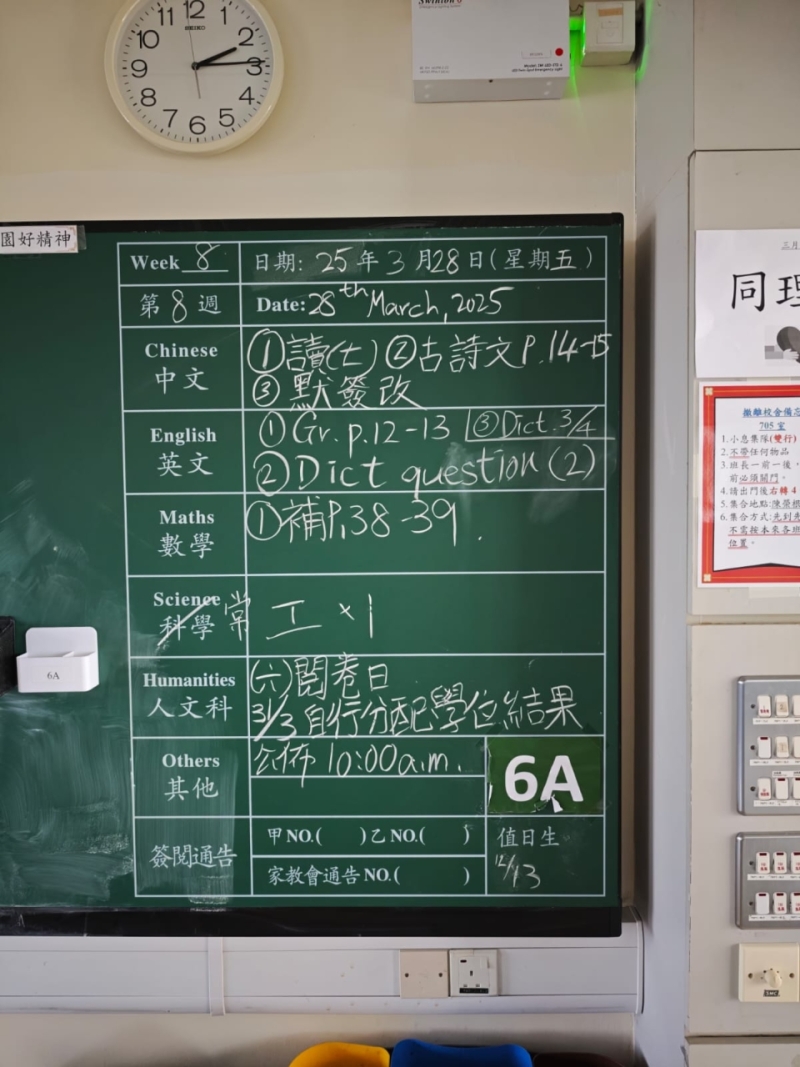 12
11
1
10
2
9
3
8
4
7
5
6
SEIKO
Swinton
園好精神
Week 8
日期: 25 年 3 月 28 日 (星期五)
第 8 週
Date: 28th March, 2025
Chinese
中文
① 讀(七) ② 古詩文 P.14-15
③ 默簽改
English
英文
① Gr. p.12-13 ③ Dict. 3/4
② Dict question (2)
Maths
數學
① 補P.38-39.
Science
科學 常
工 x 1
Humanities
人文科
(六) 閱卷日
31/3 自行分配學位結果
Others
其他
公佈 10:00a.m.
6A
簽閱通告
甲 NO.( ) 乙 NO.( )
家教會通告 NO.( )
值日生
12/13
6A
三月
同理
撤離校舍備忘
705 室
1. 小息集隊(雙行)
2. 不帶任何物品
3. 班長一前一後,
前必須關門。
4. 請出門後右轉 4
5. 集合地點:陳榮根
6. 集合方式:先到先
不需按本來各班
位置。